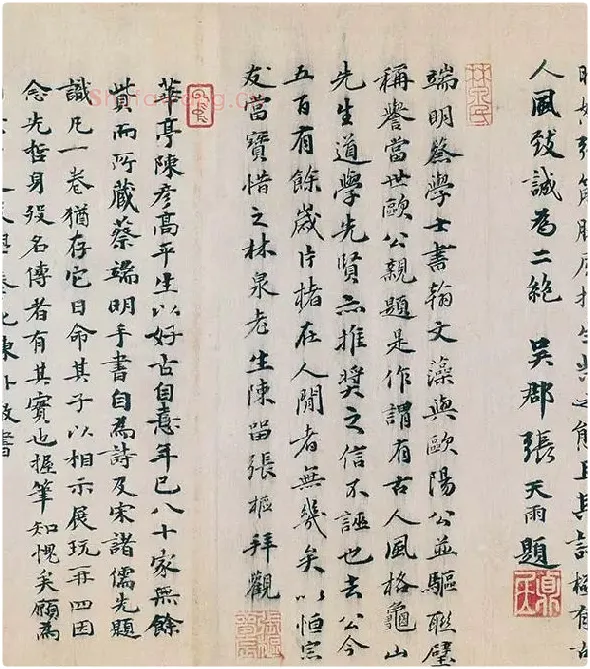 且其詩極有古
人風致誠為二絕 吳郡張天雨題
端明蔡學士書翰文藻與歐陽公並驅聯璧
稱譽當世歐公親題是作謂有古人風格龜山
先生道學先賢亦推奬之信不誣也去公今
五百有餘歲片楮在人間者無幾矣以恒宗
友當寶惜之林泉老生陳留張樞拜觀
華亭陳彥高平生以好古自憙年已八十家無餘
貲而所藏蔡端明手書自為詩及宋諸儒先題
識凡一卷猶存它日命其子以相示展玩再四因
念先哲身歿名傳者有其實也握筆知愧矣願為